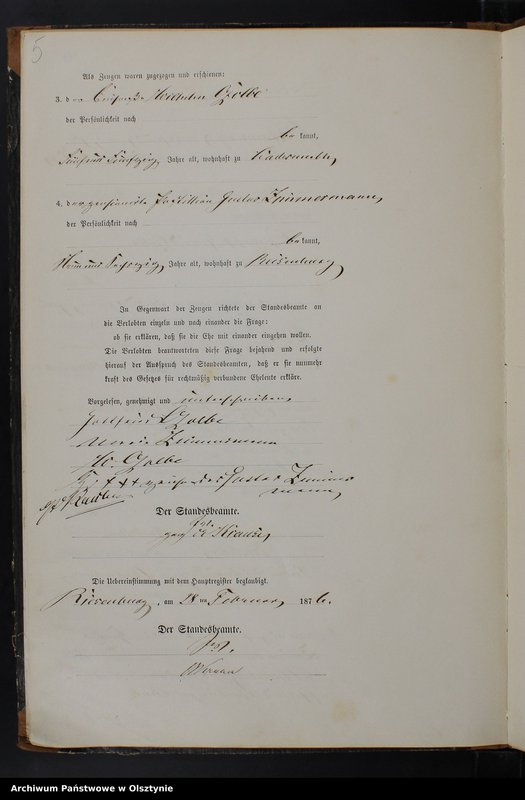 5
Als Zeugen waren zugezogen und erschienen:
3. der Hellmuth Golbe
der Persönlichkeit nach
be kannt,
fünfund fünfzig Jahre alt, wohnhaft zu
4. der Gustav Zimmermann,
der Persönlichkeit nach
be kannt,
Jahre alt, wohnhaft zu Riesenburg
In Gegenwart der Zeugen richtete der Standesbeamte an
die Verlobten einzeln und nach einander die Frage:
ob sie erklären, daß sie die Ehe mit einander eingehen wollen.
Die Verlobten beantworteten diese Frage bejahend und erfolgte
hierauf der Ausspruch des Standesbeamten, daß er sie nunmehr
kraft des Gesetzes für rechtmäßig verbundene Eheleute erkläre.
Vorgelesen, genehmigt und unterschrieben
Gottfried Golbe
Zimmermann
H. Golbe
+++ des Gustav Zimmer
mann,
Der Standesbeamte.
gez Krause,
Die Uebereinstimmung mit dem Hauptregister beglaubigt.
Riesenburg, am 28 ten Februar 1876.
Der Standesbeamte.
Archiwum Państwowe w Olsztynie